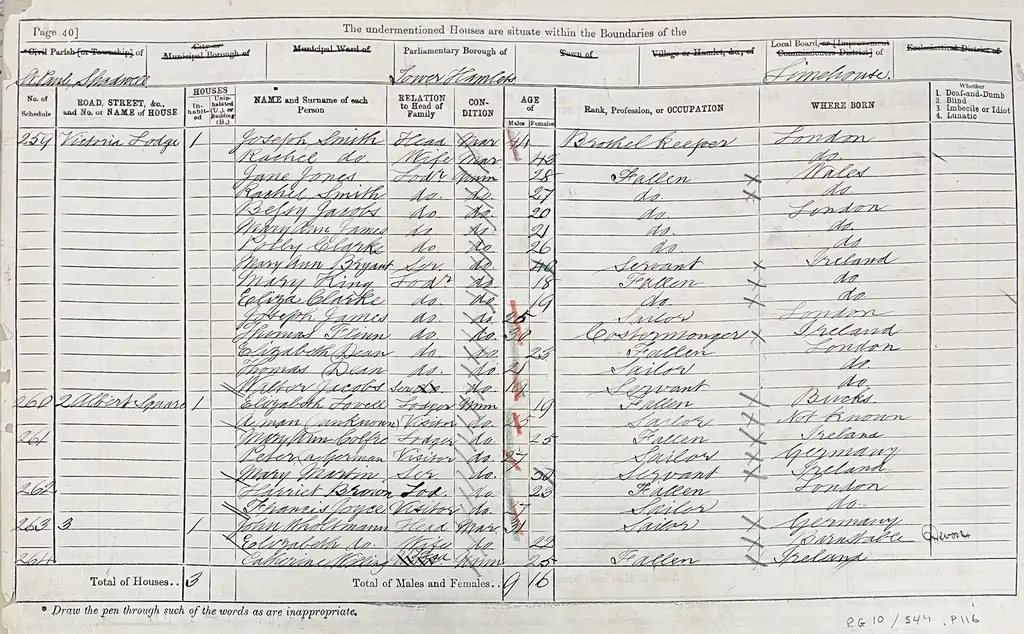 Page 40]
The undermentioned Houses are situate within the Boundaries of the
*Civil Parish [or Township] of
City or Municipal Borough of
Municipal Ward of
Parliamentary Borough of
Town of
Village or Hamlet, &c., of
Local Board, or [Improvement Commissioners District] of
Ecclesiastical District of
St Paul, Shadwell
Tower Hamlets
Limehouse
No. of Schedule
ROAD, STREET, &c., and No. or NAME of HOUSE
HOUSES
Inhabited
Uninhabited (U.), or Building (B.)
NAME and Surname of each Person
RELATION to Head of Family
CONDITION
AGE of
Males
Females
Rank, Profession, or OCCUPATION
WHERE BORN
Whether
1. Deaf-and-Dumb
2. Blind
3. Imbecile or Idiot
4. Lunatic
259 Victoria Lodge 1 Joseph Smith Head Mar 44 Brothel Keeper London
Rachel do. Wife Mar 43 do.
Jane Jones Lodr Unm 28 Fallen Wales
Rachel Smith do. do. 27 do. do
Bessy Jacobs do do. 20 do. London
Mary Ann James do do 21 do. do.
Polly Clarke do do. 26 do. do
Mary Ann Bryant Ser. do. 40 Servant Ireland
Mary King Lodr do. 18 Fallen do
Eliza Clarke do. do. 19 do. do.
Joseph James do. do. 25 Sailor London
Thomas Flinn do. do. 30 Costermonger Ireland
Elizabeth Dean do. do. 23 Fallen London
Thomas Dean do. do. 21 Sailor do.
Walter Jacobs do. Servant do.
260 2 Albert Square 1 Elizabeth Lovell Lodger Unm 19 Fallen Bucks
A man (unknown) Visitor do. 25 Sailor Not Known
261 Mary Ann Lodger do. 25 Fallen Ireland
Peter Visitor do. 27 Sailor Germany
Mary Martin Ser do. Servant Ireland
262 Harriet Brown Lod. do. 23 Fallen London
Francis Joyce Visitor do. 27 Sailor do.
263 3 1 John Head Mar 31 Sailor Germany
Elizabeth do. Wife do. 22 Barnstable Devon
264 Catherine Unm 25 Fallen Ireland
Total of Houses.. 3
Total of Males and Females.. 9 16
* Draw the pen through such of the words as are inappropriate.
RG 10 / 544 . P116